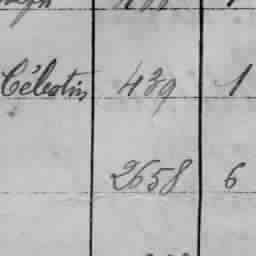 Célestin 439 1
2658 6